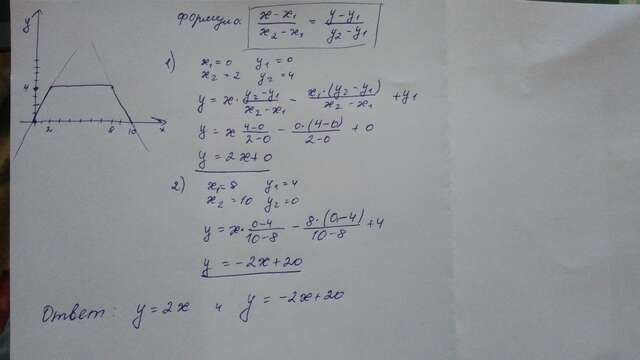 y
4
2 8 10 x
Формула: x - x₁ / x₂ - x₁ = y - y₁ / y₂ - y₁
1) x₁ = 0 y₁ = 0
x₂ = 2 y₂ = 4
y = x · y₂ - y₁ / x₂ - x₁ - x₁ · (y₂ - y₁) / x₂ - x₁ + y₁
y = x 4-0 / 2-0 - 0 · (4-0) / 2-0 + 0
y = 2x + 0
2) x₁ = 8 y₁ = 4
x₂ = 10 y₂ = 0
y = x · 0-4 / 10-8 - 8 · (0-4) / 10-8 + 4
y = -2x + 20
Ответ: y = 2x и y = -2x + 20